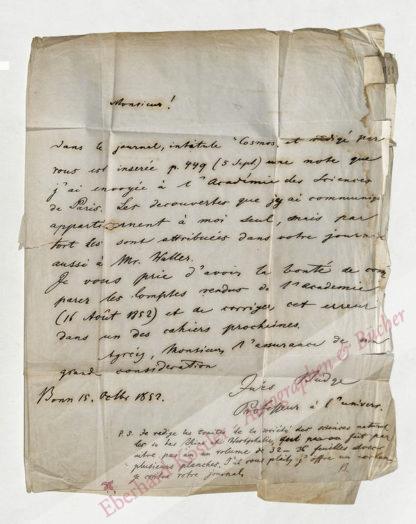 Monsieur!
Dans le journal, intitulé "Cosmos" et rédigé par
vous est inserée p. 449 (5 Sept) une note que
j'ai envoyée à l'Académie des Sciences
de Paris. Les decouvertes que j'y ai communiqu
appartiennent à moi seul, mais par
tort ils sont attribuées dans votre journal
aussi à Mr. Waller.
Je vous prie d'avoir la bonté de com
parer les Comptes rendus de l'academie
(16 Août 1852) et de corriger cet erreur
dans un des cahiers prochaines.
Agréez, Monsieur, l'assurance de
grand consideration
Jules Budge
Professeur à l'univers.
Bonn 15. Octbr 1852.
P.S. Je redige les de la société des sciences naturel
les de la Rhin et Westphalie,
par an un volume de 32-36 feuilles
plusieurs planches. S'il vous plait, j'offre un
votre journal.
B.
Eberhard Köstler Autographen & Bücher